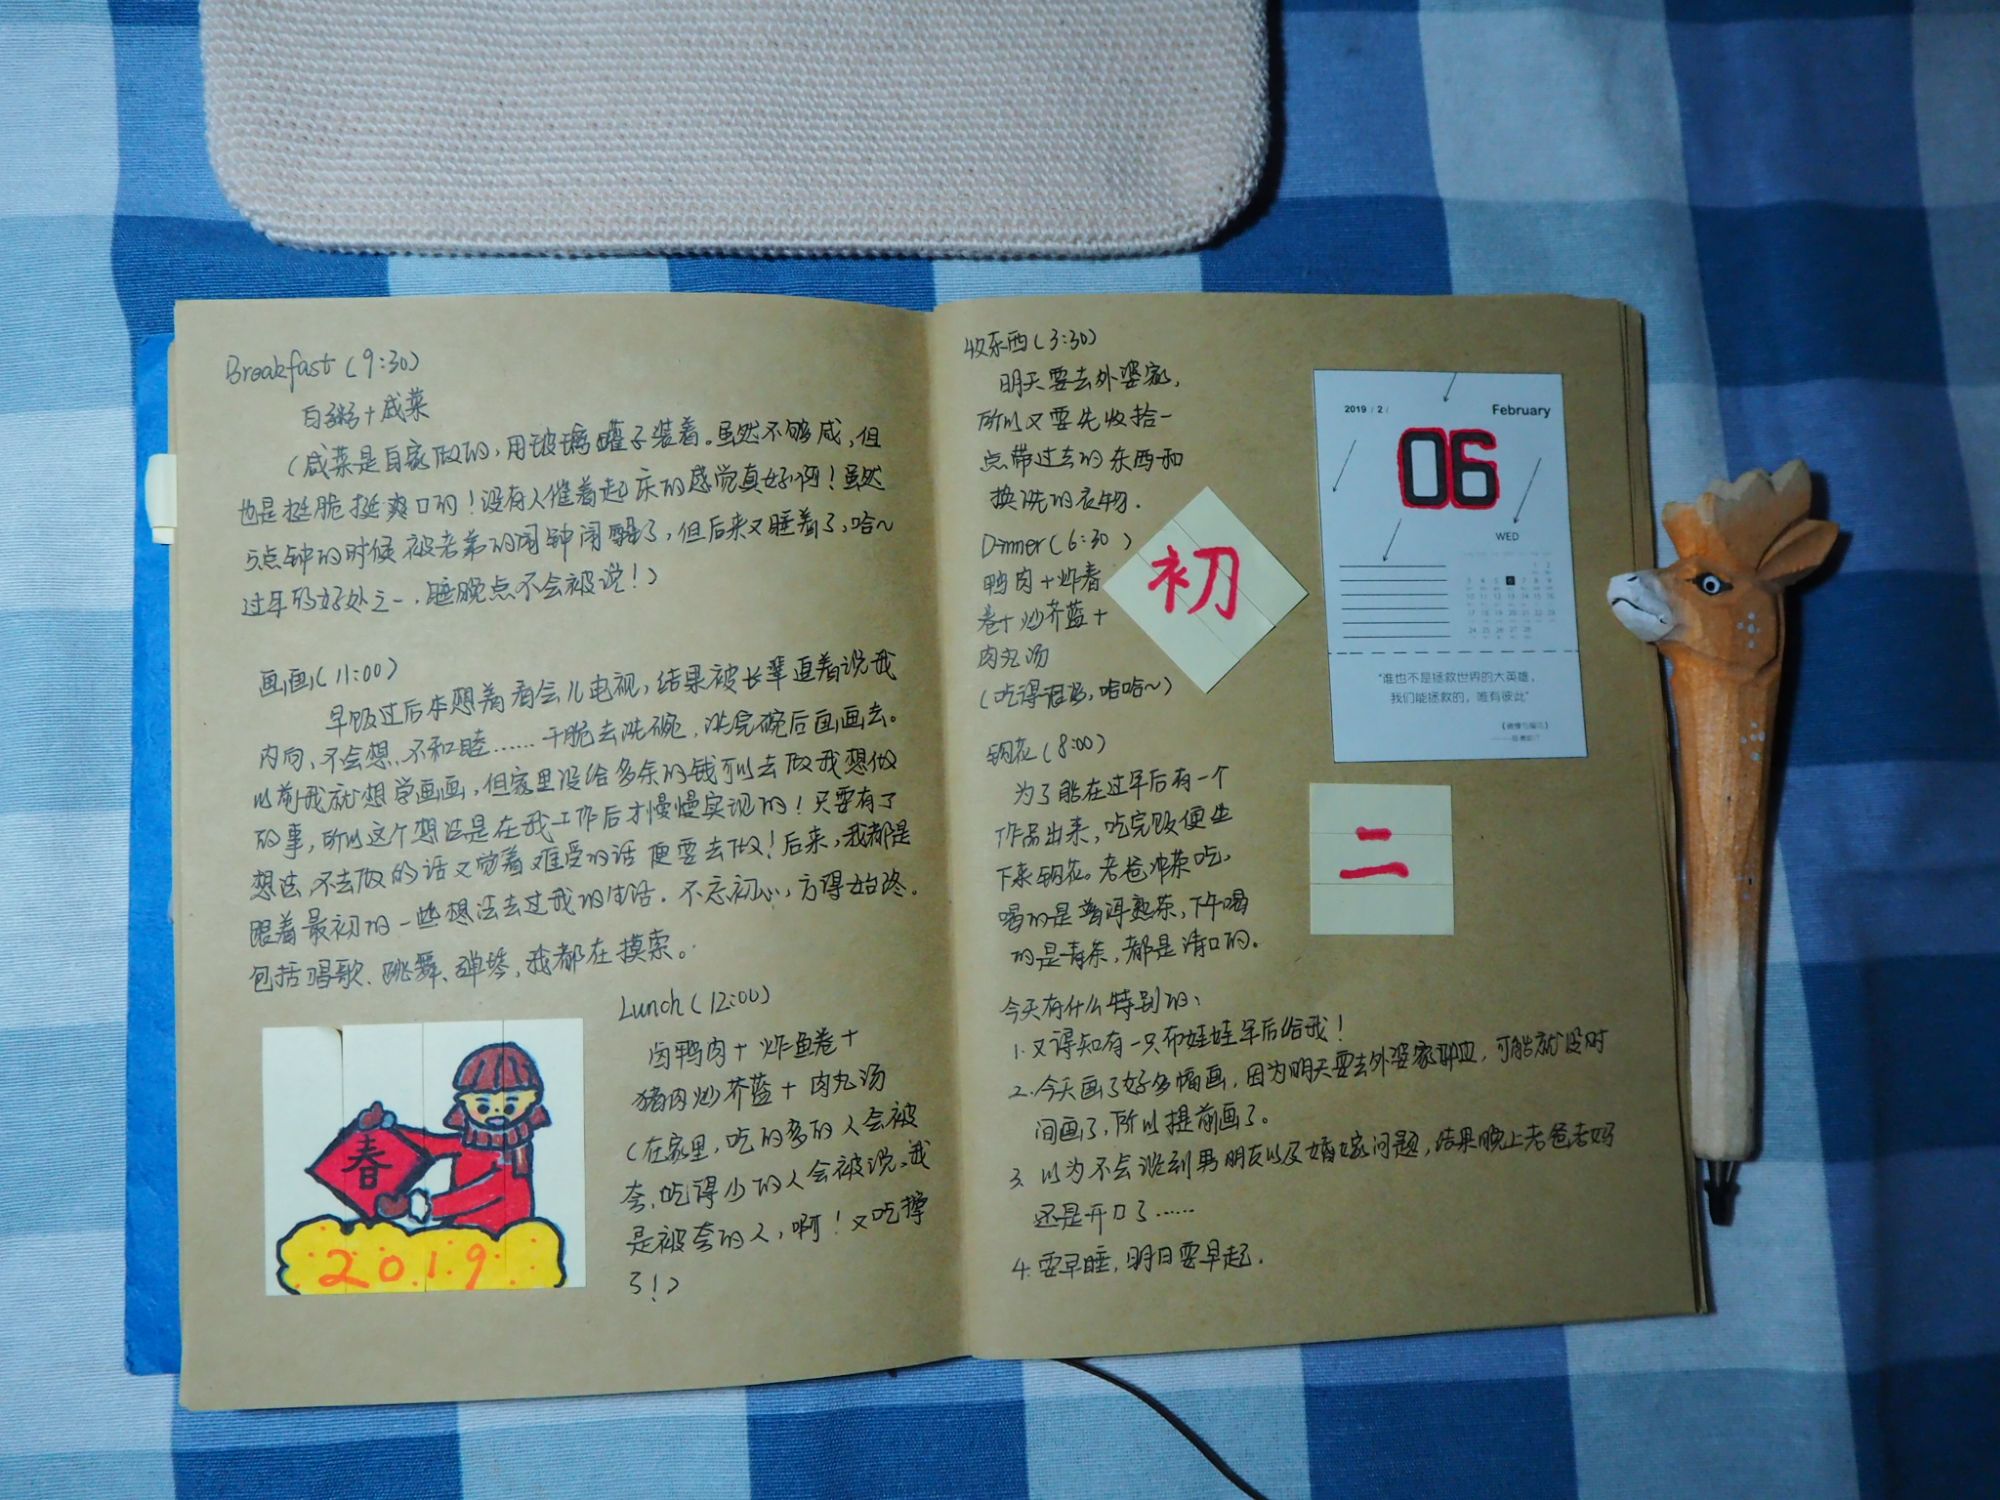 Breakfast(9:30)
白粥+咸菜
(咸菜是自家做的,用玻璃罐子装着。虽然不够咸,但
也是挺脆挺爽口的!没有人催着起床的感觉真好啊!虽然
5点钟的时候被老弟的闹钟闹醒了,但后来又睡着了,哈~
过年的好处之一,睡晚点不会被说!)
画画(11:00)
早饭过后本想着看会儿电视,结果被长辈追着说我
内向、不会想、不和睦……干脆去洗碗,洗完碗后画画去。
以前我就想学画画,但家里没给多余的钱可以去做我想做
的事,所以这个想法是在我工作后才慢慢实现的!只要有了
想法,不去做的话又觉着难受的话便要去做!后来,我都是
跟着最初的一些想法去过我的生活。不忘初心,方得始终。
包括唱歌、跳舞、弹琴,我都在摸索。
Lunch(12:00)
卤鸭肉+炸鱼卷+
猪肉炒芥蓝+肉丸汤
(在家里,吃的多的人会被
夸,吃得少的人会被说,我
是被夸的人,啊!又吃撑
了!)
春
2019
收东西(3:30)
明天要去外婆家,
所以又要先收拾一
点带过去的东西和
换洗的衣物.
Dinner(6:30)
鸭肉+炸春
卷+炒芥蓝+
肉丸汤
(吃得很多,哈哈~)
钩花(8:00)
为了能在过年后有一个
作品出来,吃完饭便坐
下来钩花。老爸冲茶吃,
喝的是普洱熟茶,下午喝
的是青茶,都是清口的。
今天有什么特别的:
1.又得知有一只布娃娃年后给我!
2.今天画了好多幅画,因为明天要去外婆家那边,可能就没时
间画了,所以提前画了。
3.以为不会谈到男朋友以及婚嫁问题,结果晚上老爸老妈
还是开口了……
4.要早睡,明日要早起.
初
二
2019 / 2 /
February
06
WED
"谁也不是拯救世界的大英雄,
我们能拯救的,唯有彼此"